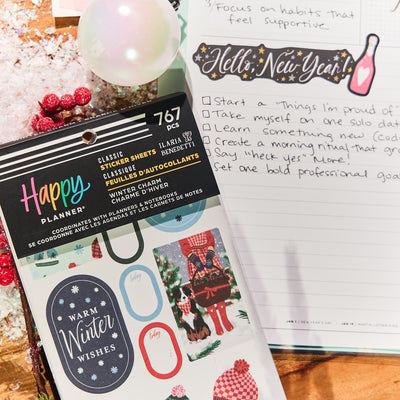 3 Focus on habits that
feel supportive
Hello, New Year!
Start a "Things I'm proud of"
Take myself on one solo date
Learn something new (cod
Create a morning ritual that gro
Say "heck yes" more!
Set one bold professional goal
767
pcs
CLASSIC
STICKER SHEETS
CLASSIQUE
FEUILLES D'AUTOCOLLANTS
ILARIA
BENEDETTI
WINTER CHARM
CHARME D'HIVER
Happy
PLANNER®
COORDINATES WITH PLANNERS & NOTEBOOKS
SE COORDONNE AVEC LES AGENDAS ET LES CARNETS DE NOTES
today
today
WARM
Winter
WISHES
JAN 1 | NEW YEAR'S DAY